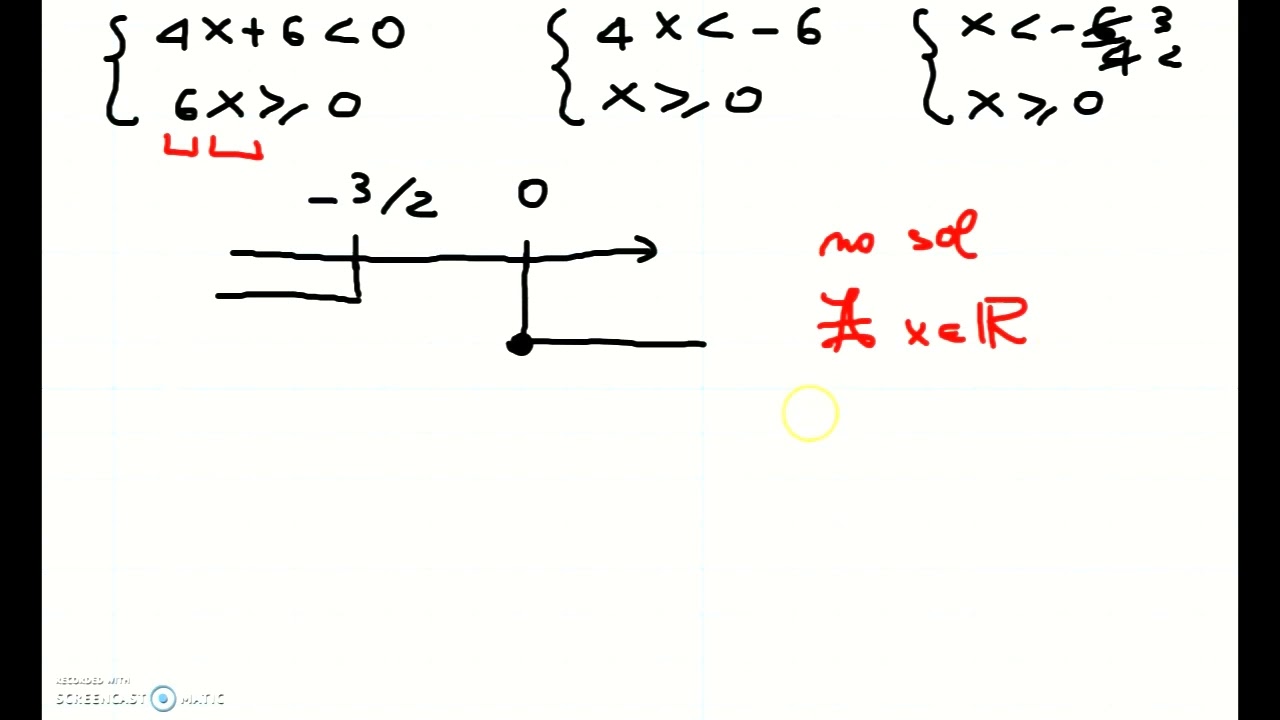 { 4x+6<0 { 4x<-6 { x<-6/4 3 2
{ 6x⩾0 { x⩾0 { x⩾0
-3/2 0
no sol
∄ x∈ℝ
RECORDED WITH
SCREENCAST MATIC